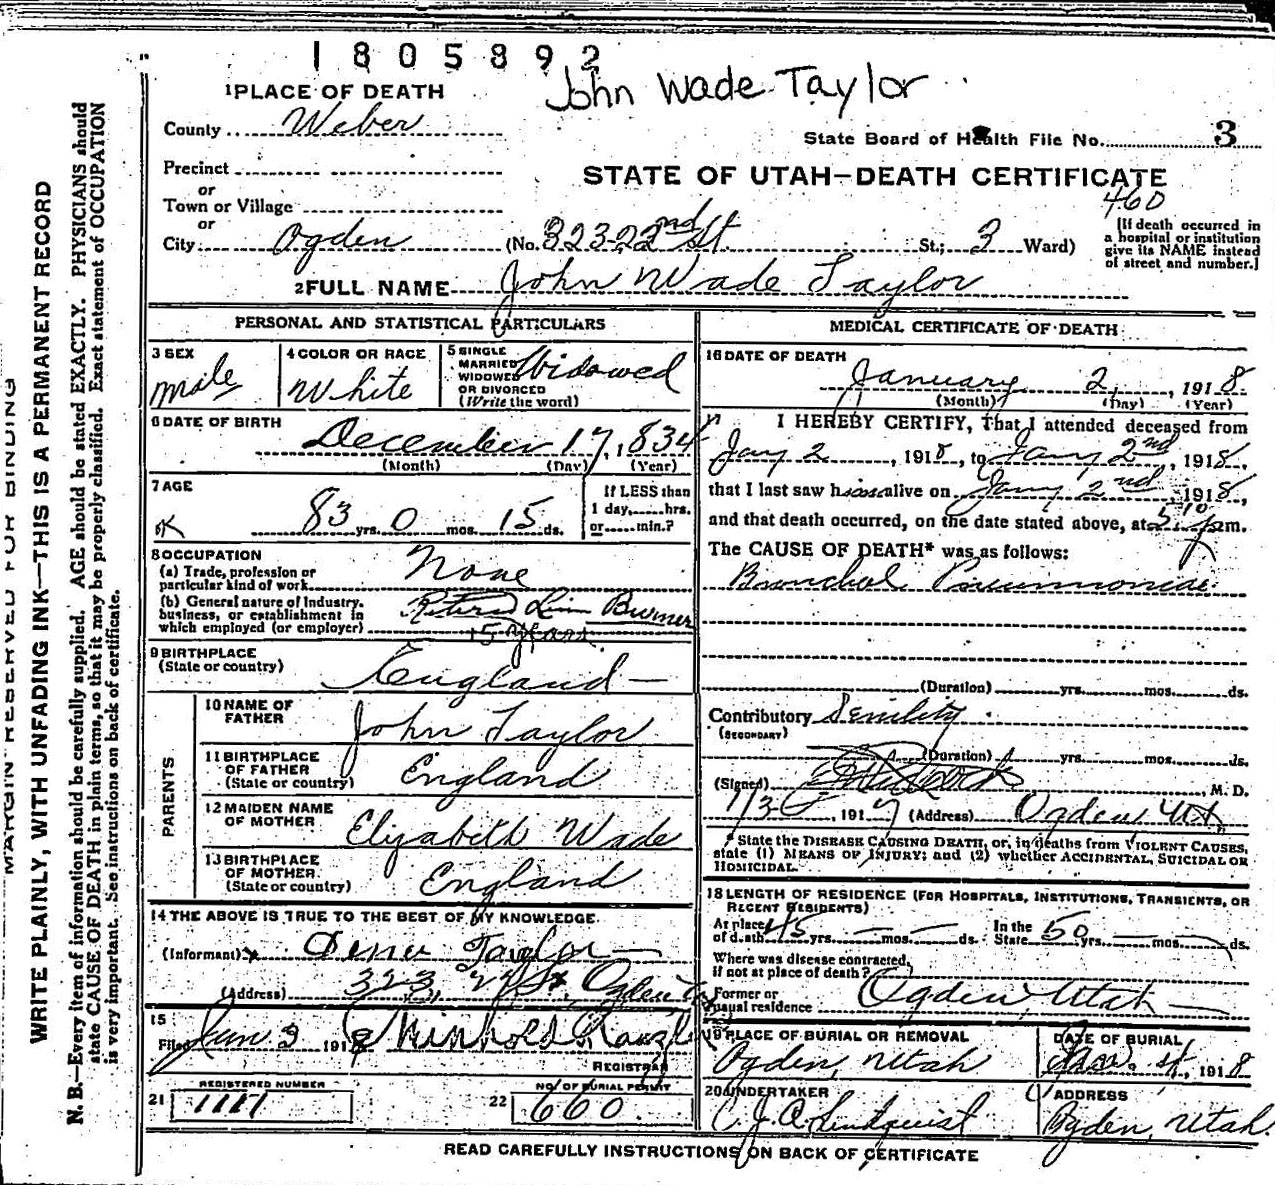 1805892
John Wade Taylor
1 PLACE OF DEATH
County Weber
State Board of Health File No. 3
Precinct
STATE OF UTAH—DEATH CERTIFICATE
or
460
Town or Village
or
City Ogden (No. 323 22nd St. St.; 3 Ward)
[If death occurred in
a hospital or institution
give its NAME instead
of street and number.]
2 FULL NAME John Wade Taylor
PERSONAL AND STATISTICAL PARTICULARS
3 SEX
Male
4 COLOR OR RACE
White
5 SINGLE
MARRIED
WIDOWED
OR DIVORCED
(Write the word)
Widowed
6 DATE OF BIRTH
December 17, 1834
(Month) (Day) (Year)
7 AGE
OK 83 yrs. 0 mos. 15 ds.
If LESS than
1 day, hrs.
or min.?
8 OCCUPATION
(a) Trade, profession or
particular kind of work None
(b) General nature of Industry,
business, or establishment in
which employed (or employer) Retired Lime Burner
15 years
9 BIRTHPLACE
(State or country) England
PARENTS
10 NAME OF
FATHER John Taylor
11 BIRTHPLACE
OF FATHER
(State or country) England
12 MAIDEN NAME
OF MOTHER Elizabeth Wade
13 BIRTHPLACE
OF MOTHER
(State or country) England
14 THE ABOVE IS TRUE TO THE BEST OF MY KNOWLEDGE
(Informant) Taylor
(Address) 323, St. Ogden
15
Filed Jan. 3 1918
REGISTRAR
REGISTERED NUMBER
21 1111
NO. OF BURIAL PERMIT
22 660
MEDICAL CERTIFICATE OF DEATH
16 DATE OF DEATH
January 2, 1918
(Month) (Day) (Year)
17 I HEREBY CERTIFY, That I attended deceased from
Jany 2, 1918, to Jany 2nd, 1918,
that I last saw him alive on Jany 2nd, 1918,
and that death occurred, on the date stated above, at pm.
The CAUSE OF DEATH* was as follows:
Bronchial Pneumoniae
(Duration) yrs. mos. ds.
Contributory Senility
(SECONDARY)
(Duration) yrs. mos. ds.
(Signed) , M. D.
, 1917 (Address) Ogden Ut.
* State the DISEASE CAUSING DEATH, or, in deaths from VIOLENT CAUSES,
state (1) MEANS OF INJURY; and (2) whether ACCIDENTAL, SUICIDAL OR
HOMICIDAL.
18 LENGTH OF RESIDENCE (FOR HOSPITALS, INSTITUTIONS, TRANSIENTS, OR
RECENT RESIDENTS)
At place
of death 45 yrs. — mos. — ds. In the
State 50 yrs. — mos. — ds.
Where was disease contracted,
if not at place of death?
Former or
usual residence Ogden, Utah
19 PLACE OF BURIAL OR REMOVAL
Ogden, Utah
DATE OF BURIAL
Jan. , 1918
20 UNDERTAKER
Lindquist
ADDRESS
Ogden, Utah.
READ CAREFULLY INSTRUCTIONS ON BACK OF CERTIFICATE
MARGIN RESERVED FOR BINDING
WRITE PLAINLY, WITH UNFADING INK—THIS IS A PERMANENT RECORD
N. B.—Every item of information should be carefully supplied. AGE should be stated EXACTLY. PHYSICIANS should
state CAUSE OF DEATH in plain terms, so that it may be properly classified. Exact statement of OCCUPATION
is very important. See instructions on back of certificate.